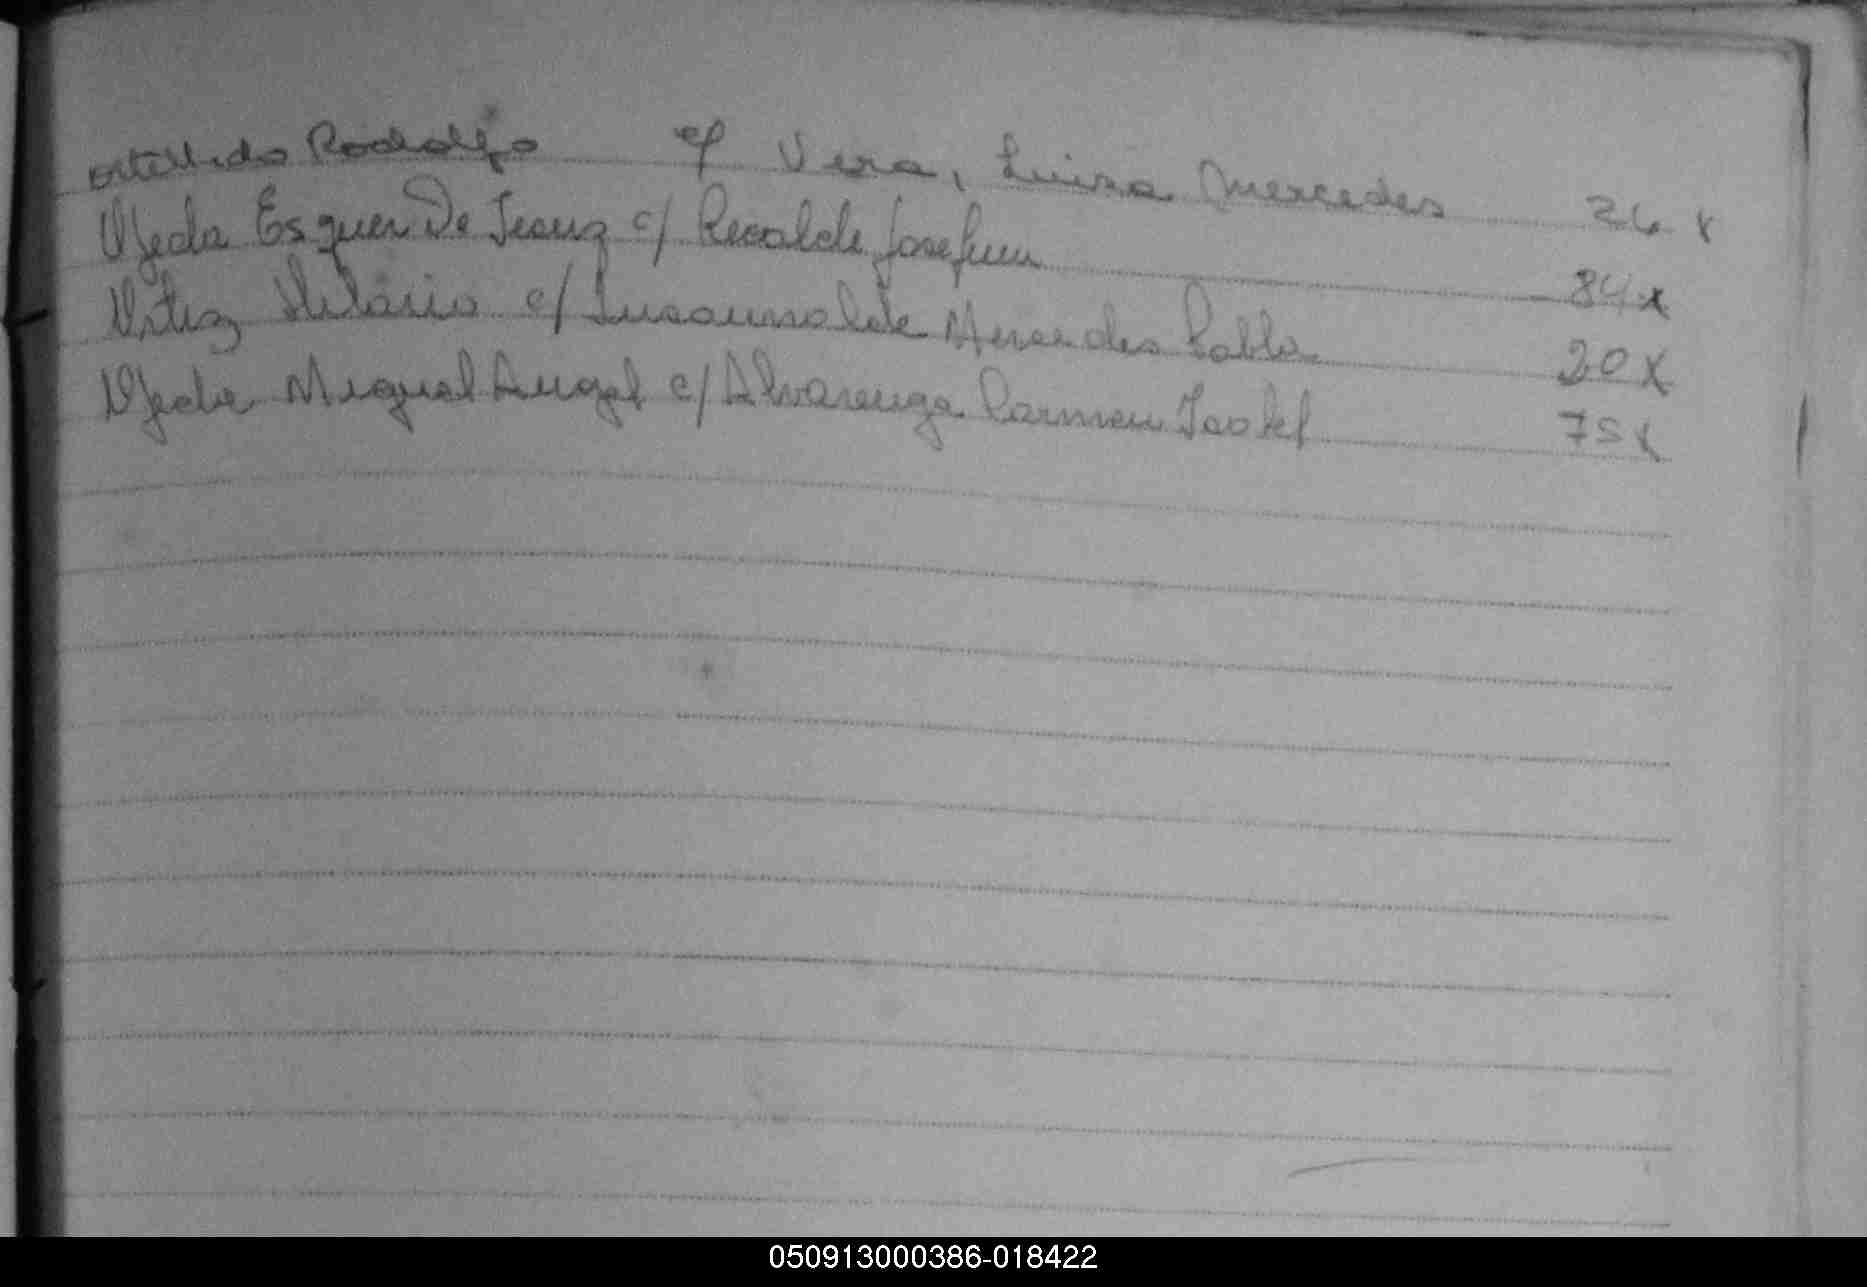 Ortellado Rodolfo c/ Vera, Luisa Mercedes 26 x
Ojeda Esquer De Jesuz c/ Recalde Josefina 84 x
Ortiz Hilario c/ Insaurralde Mercedes Pabla 20 x
Ojeda Miguel Angel c/ Alvarenga Carmen Isabel 75 x
050913000386-018422